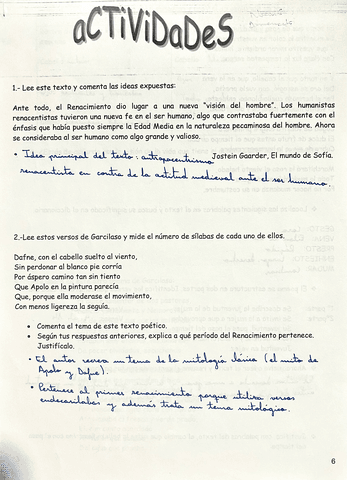 aCTiViDaDeS
1.- Lee este texto y comenta las ideas expuestas:
Ante todo, el Renacimiento dio lugar a una nueva "visión del hombre". Los humanistas
renacentistas tuvieron una nueva fe en el ser humano, algo que contrastaba fuertemente con el
énfasis que había puesto siempre la Edad Media en la naturaleza pecaminosa del hombre. Ahora
se consideraba al ser humano como algo grande y valioso.
• Idea principal del texto: antropocentrismo Jostein Gaarder, El mundo de Sofía.
renacentista en contra de la actitud medieval ante el ser humano.
2.-Lee estos versos de Garcilaso y mide el número de sílabas de cada uno de ellos.
Dafne, con el cabello suelto al viento,
Sin perdonar al blanco pie corría
Por áspero camino tan sin tiento
Que Apolo en la pintura parecía
Que, porque ella moderase el movimiento,
Con menos ligereza la seguía.
• Comenta el tema de este texto poético.
• Según tus respuestas anteriores, explica a qué período del Renacimiento pertenece.
Justifícalo.
• El autor recrea un tema de la mitología clásica (el mito de
Apolo y Dafne).
• Pertenece al primer renacimiento porque utiliza versos
endecasílabos y además trata un tema mitológico.
6